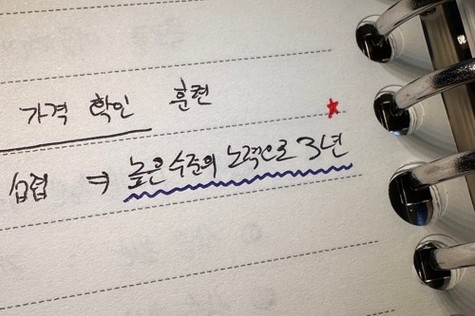 가격 확인 훈련
섭렵 ⇒ 높은 수준의 노력으로 3년